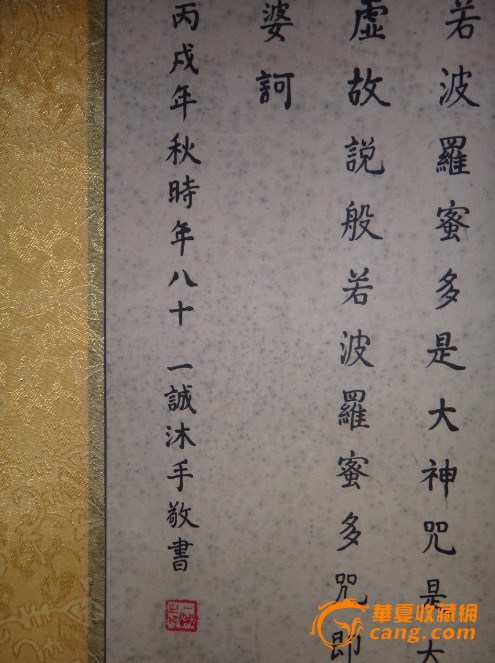 若波羅蜜多是大神咒是大
虛故説般若波羅蜜多咒即
婆訶
丙戌年秋時年八十 一誠沐手敬書
華夏收藏網
cang.com